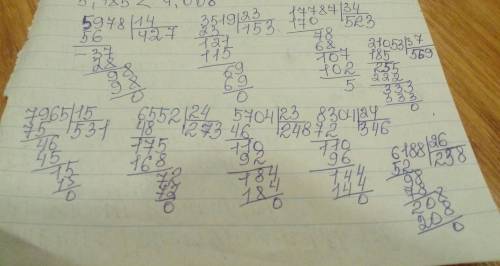 5978 | 14
56 | 427
37
28
98
98
0
3519 | 23
23 | 153
121
115
69
69
0
17787 | 34
170 | 523
78
68
107
102
5
21053 | 37
185 | 569
255
222
333
333
0
7965 | 15
75 | 531
46
45
15
15
0
6552 | 24
48 | 273
175
168
72
72
0
5704 | 23
46 | 248
110
92
184
184
0
8304 | 24
72 | 346
110
96
144
144
0
6188 | 26
52 | 238
98
78
208
208
0